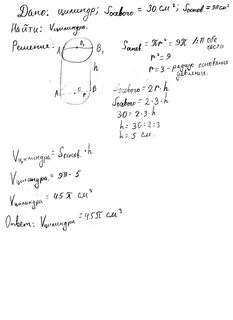 Дано: цилиндр; Sосевого = 30 см²; Sоснов = 9π см²
Найти: Vцилиндра.
Решение:
A₁ O₁ B₁
h
A O r B
Sоснов = πr² = 9π
r² = 9
r = 3 - радиус основания
Sосевого = 2r·h
Sосевого = 2·3·h
30 = 2·3·h
h = 30:2:3
h = 5 см.
Vцилиндра = Sоснов·h
Vцилиндра = 9π·5
Vцилиндра = 45π см³
Ответ: Vцилиндра = 45π см³